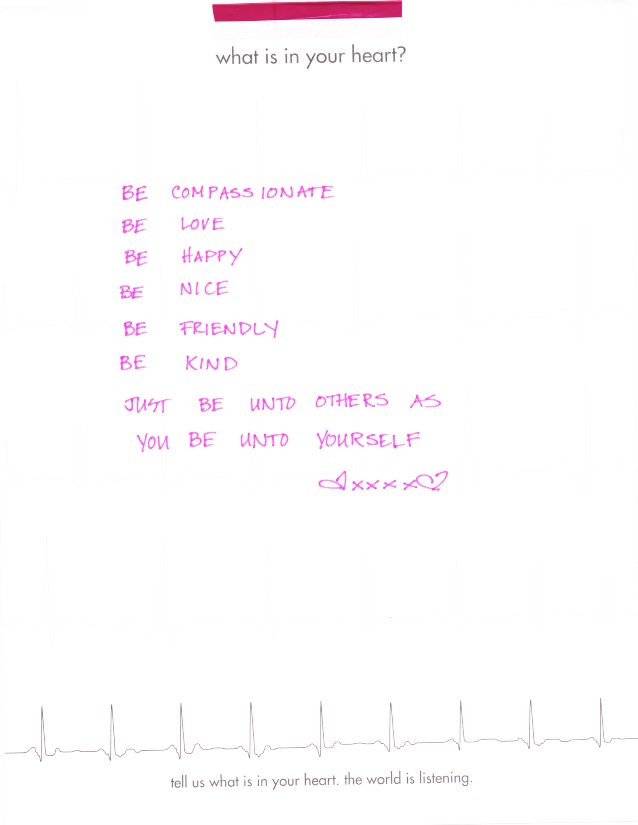 what is in your heart?
BE COMPASSIONATE
BE LOVE
BE HAPPY
BE NICE
BE FRIENDLY
BE KIND
JUST BE UNTO OTHERS AS
YOU BE UNTO YOURSELF
♡xxxx♡
tell us what is in your heart. the world is listening.